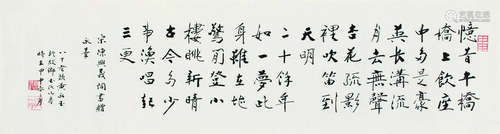 憶昔午橋
橋上飲座
中多是豪
英長溝流
月去無聲
杏花疏影
裡吹笛到
天明
二十餘年
如一夢此
身雖在堪
驚閑登小
樓眺新晴
古今多少
事漁唱起
三更
宋陳與義詞書贈